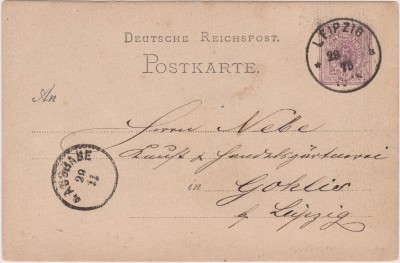 DEUTSCHE REICHSPOST.
POSTKARTE.
LEIPZIG
29
75
An
Herrn Nebe
Kunst & Handelsgärtnerei
in Gohlis
b/ Leipzig
AUSGABE
29
11